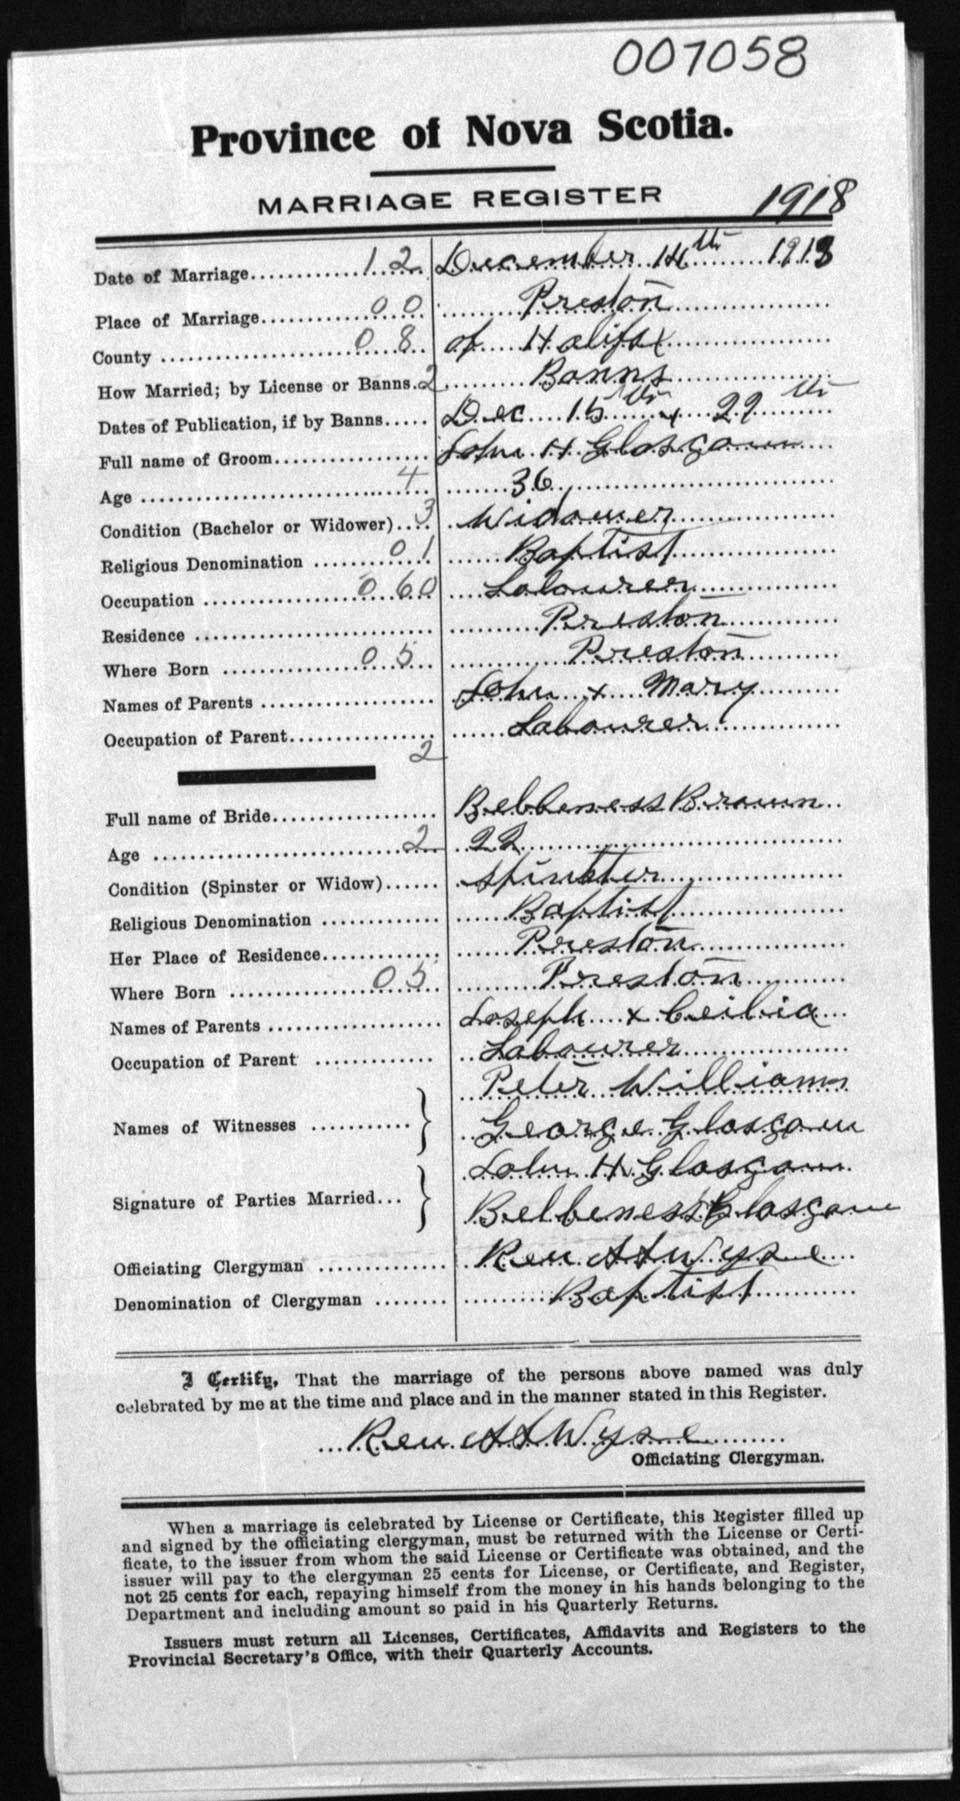 007058
Province of Nova Scotia.
MARRIAGE REGISTER 1918
Date of Marriage 12 December 14th 1918
Place of Marriage 00 Preston
County 08 of Halifax
How Married; by License or Banns. 2 Banns
Dates of Publication, if by Banns Dec 15th x 29th
Full name of Groom John H Glosgown
Age 4 36
Condition (Bachelor or Widower) 3 Widower
Religious Denomination 01 Baptist
Occupation 060 Labourer
Residence Preston
Where Born 05 Preston
Names of Parents John x Mary
Occupation of Parent Labourer
2
Full name of Bride Belbeness Brown
Age 2 22
Condition (Spinster or Widow) Spinster
Religious Denomination Baptist
Her Place of Residence Preston
Where Born 05 Preston
Names of Parents Joseph x Ceilia
Occupation of Parent Labourer
Peter Williams
Names of Witnesses
George Glosgow
John H Glosgow
Signature of Parties Married...
Belbeness Glosgow
Officiating Clergyman Rev A A Wyse
Denomination of Clergyman Baptist
I Certify, That the marriage of the persons above named was duly
celebrated by me at the time and place and in the manner stated in this Register.
Rev A A Wyse
Officiating Clergyman.
When a marriage is celebrated by License or Certificate, this Register filled up
and signed by the officiating clergyman, must be returned with the License or Certi-
ficate, to the issuer from whom the said License or Certificate was obtained, and the
issuer will pay to the clergyman 25 cents for License, or Certificate, and Register,
not 25 cents for each, repaying himself from the money in his hands belonging to the
Department and including amount so paid in his Quarterly Returns.
Issuers must return all Licenses, Certificates, Affidavits and Registers to the
Provincial Secretary's Office, with their Quarterly Accounts.